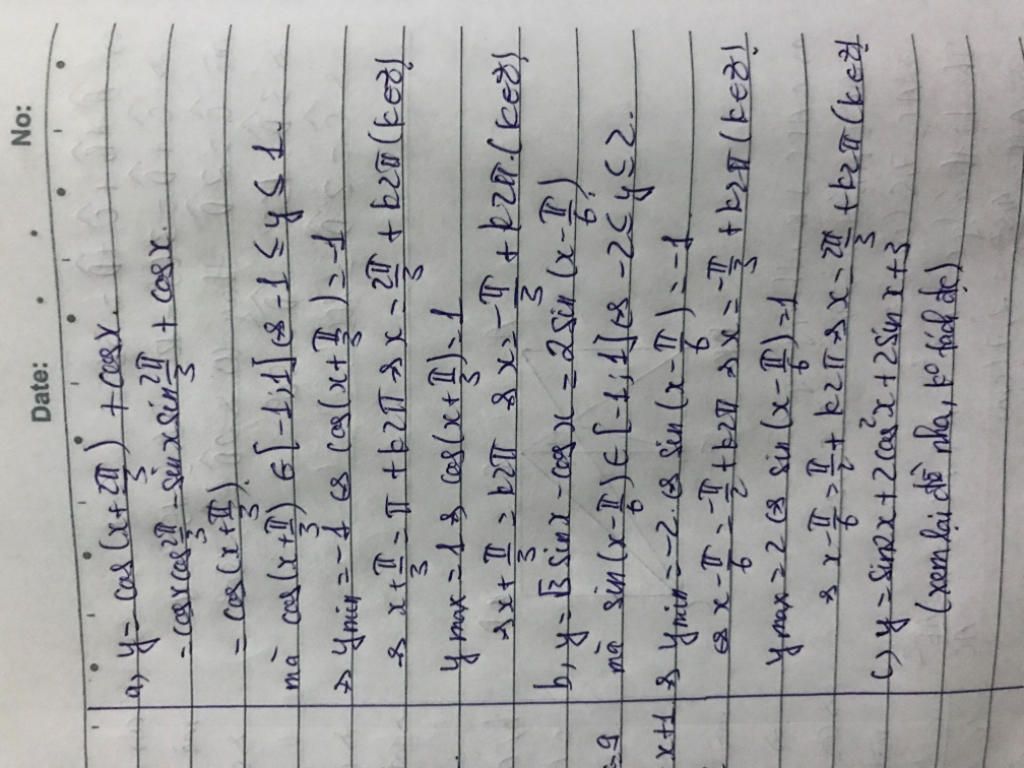 Date: No:
a, y = cos(x + 2π/3) + cosx.
= cosx cos 2π/3 - sinx sin 2π/3 + cosx.
= cos(x + π/3).
mà cos(x + π/3) ∈ [-1;1] ⇔ -1 ≤ y ≤ 1.
⇒ ymin = -1 ⇔ cos(x + π/3) = -1
⇒ x + π/3 = π + k2π ⇒ x = 2π/3 + k2π (k∈Z)
ymax = 1 ⇒ cos(x + π/3) = 1
⇒ x + π/3 = k2π ⇒ x = -π/3 + k2π. (k∈Z)
b, y = √3 sinx - cosx = 2 sin(x - π/6).
mà sin(x - π/6) ∈ [-1;1] ⇔ -2 ≤ y ≤ 2.
=9
x+1. ⇒ ymin = -2. ⇔ sin(x - π/6) = -1
⇔ x - π/6 = -π/2 + k2π ⇒ x = -π/3 + k2π (k∈Z)
ymax = 2 ⇔ sin(x - π/6) = 1
⇒ x - π/6 = π/2 + k2π ⇒ x = 2π/3 + k2π (k∈Z)
c, y = sin2x + 2cos²x + 2sinx + 3
(xem lại đề nha, ko tách đc)